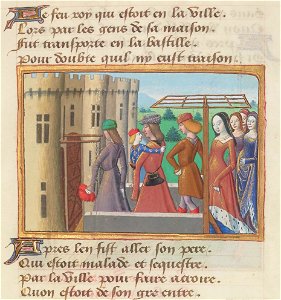 Le feu roy qui estoit en la ville.
Lors par les gens de sa maison.
Fut transporte en la bastille.
Pour doubte quil ny eust traison.
Apres len fist aller son pere.
Qui estoit malade et sequestre.
Par la ville pour faire acroire.
Quon estoit de son gre entre.